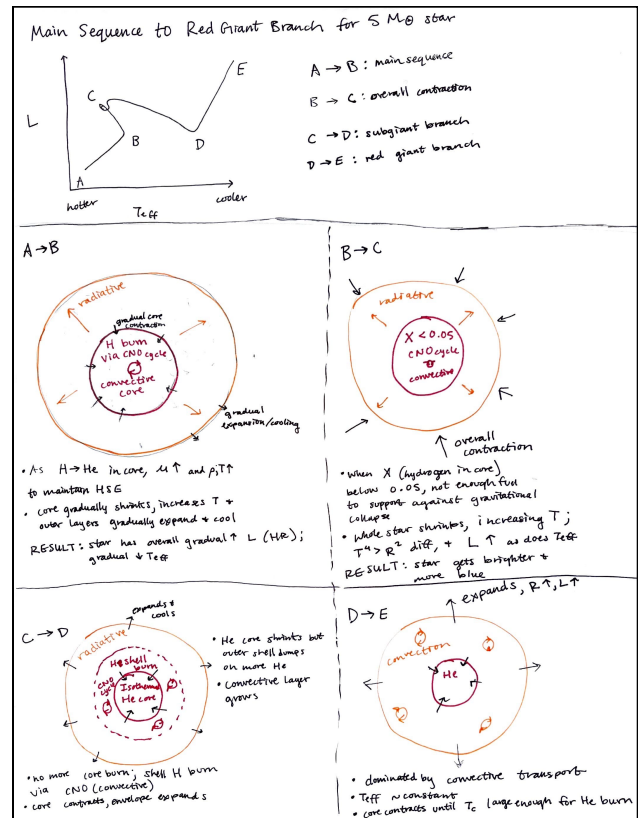 Main Sequence to Red Giant Branch for 5 M⊙ star
L
A
B
C
D
E
hotter
Teff
cooler
A → B : main sequence
B → C : overall contraction
C → D : subgiant branch
D → E : red giant branch
A → B
radiative
gradual core
contraction
H burn
via CNO cycle
convective
core
gradual
expansion/cooling
• As H → He in core, μ↑ and ρ,T↑
to maintain HSE
• core gradually shrinks, increases T +
outer layers gradually expand + cool
RESULT: star has overall gradual ↑ L (HR);
gradual ↓ Teff
B → C
radiative
X < 0.05
CNO cycle
convective
overall
contraction
• when X (hydrogen in core)
below 0.05, not enough fuel
to support against gravitational
collapse
• Whole star shrinks, increasing T;
T⁴ > R² diff, + L ↑ as does Teff
RESULT: star gets brighter +
more blue
C → D
expands +
cools
radiative
H shell
burn
CNO
cycle
Isothermal
He core
• He core shrinks but
outer shell dumps
on more He
• Convective layer
grows
• no more core burn; shell H burn
via CNO (convective)
• core contracts, envelope expands
D → E
expands, R↑, L↑
convection
He
• dominated by convective transport
• Teff ~ constant
• core contracts until Tc large enough for He burn